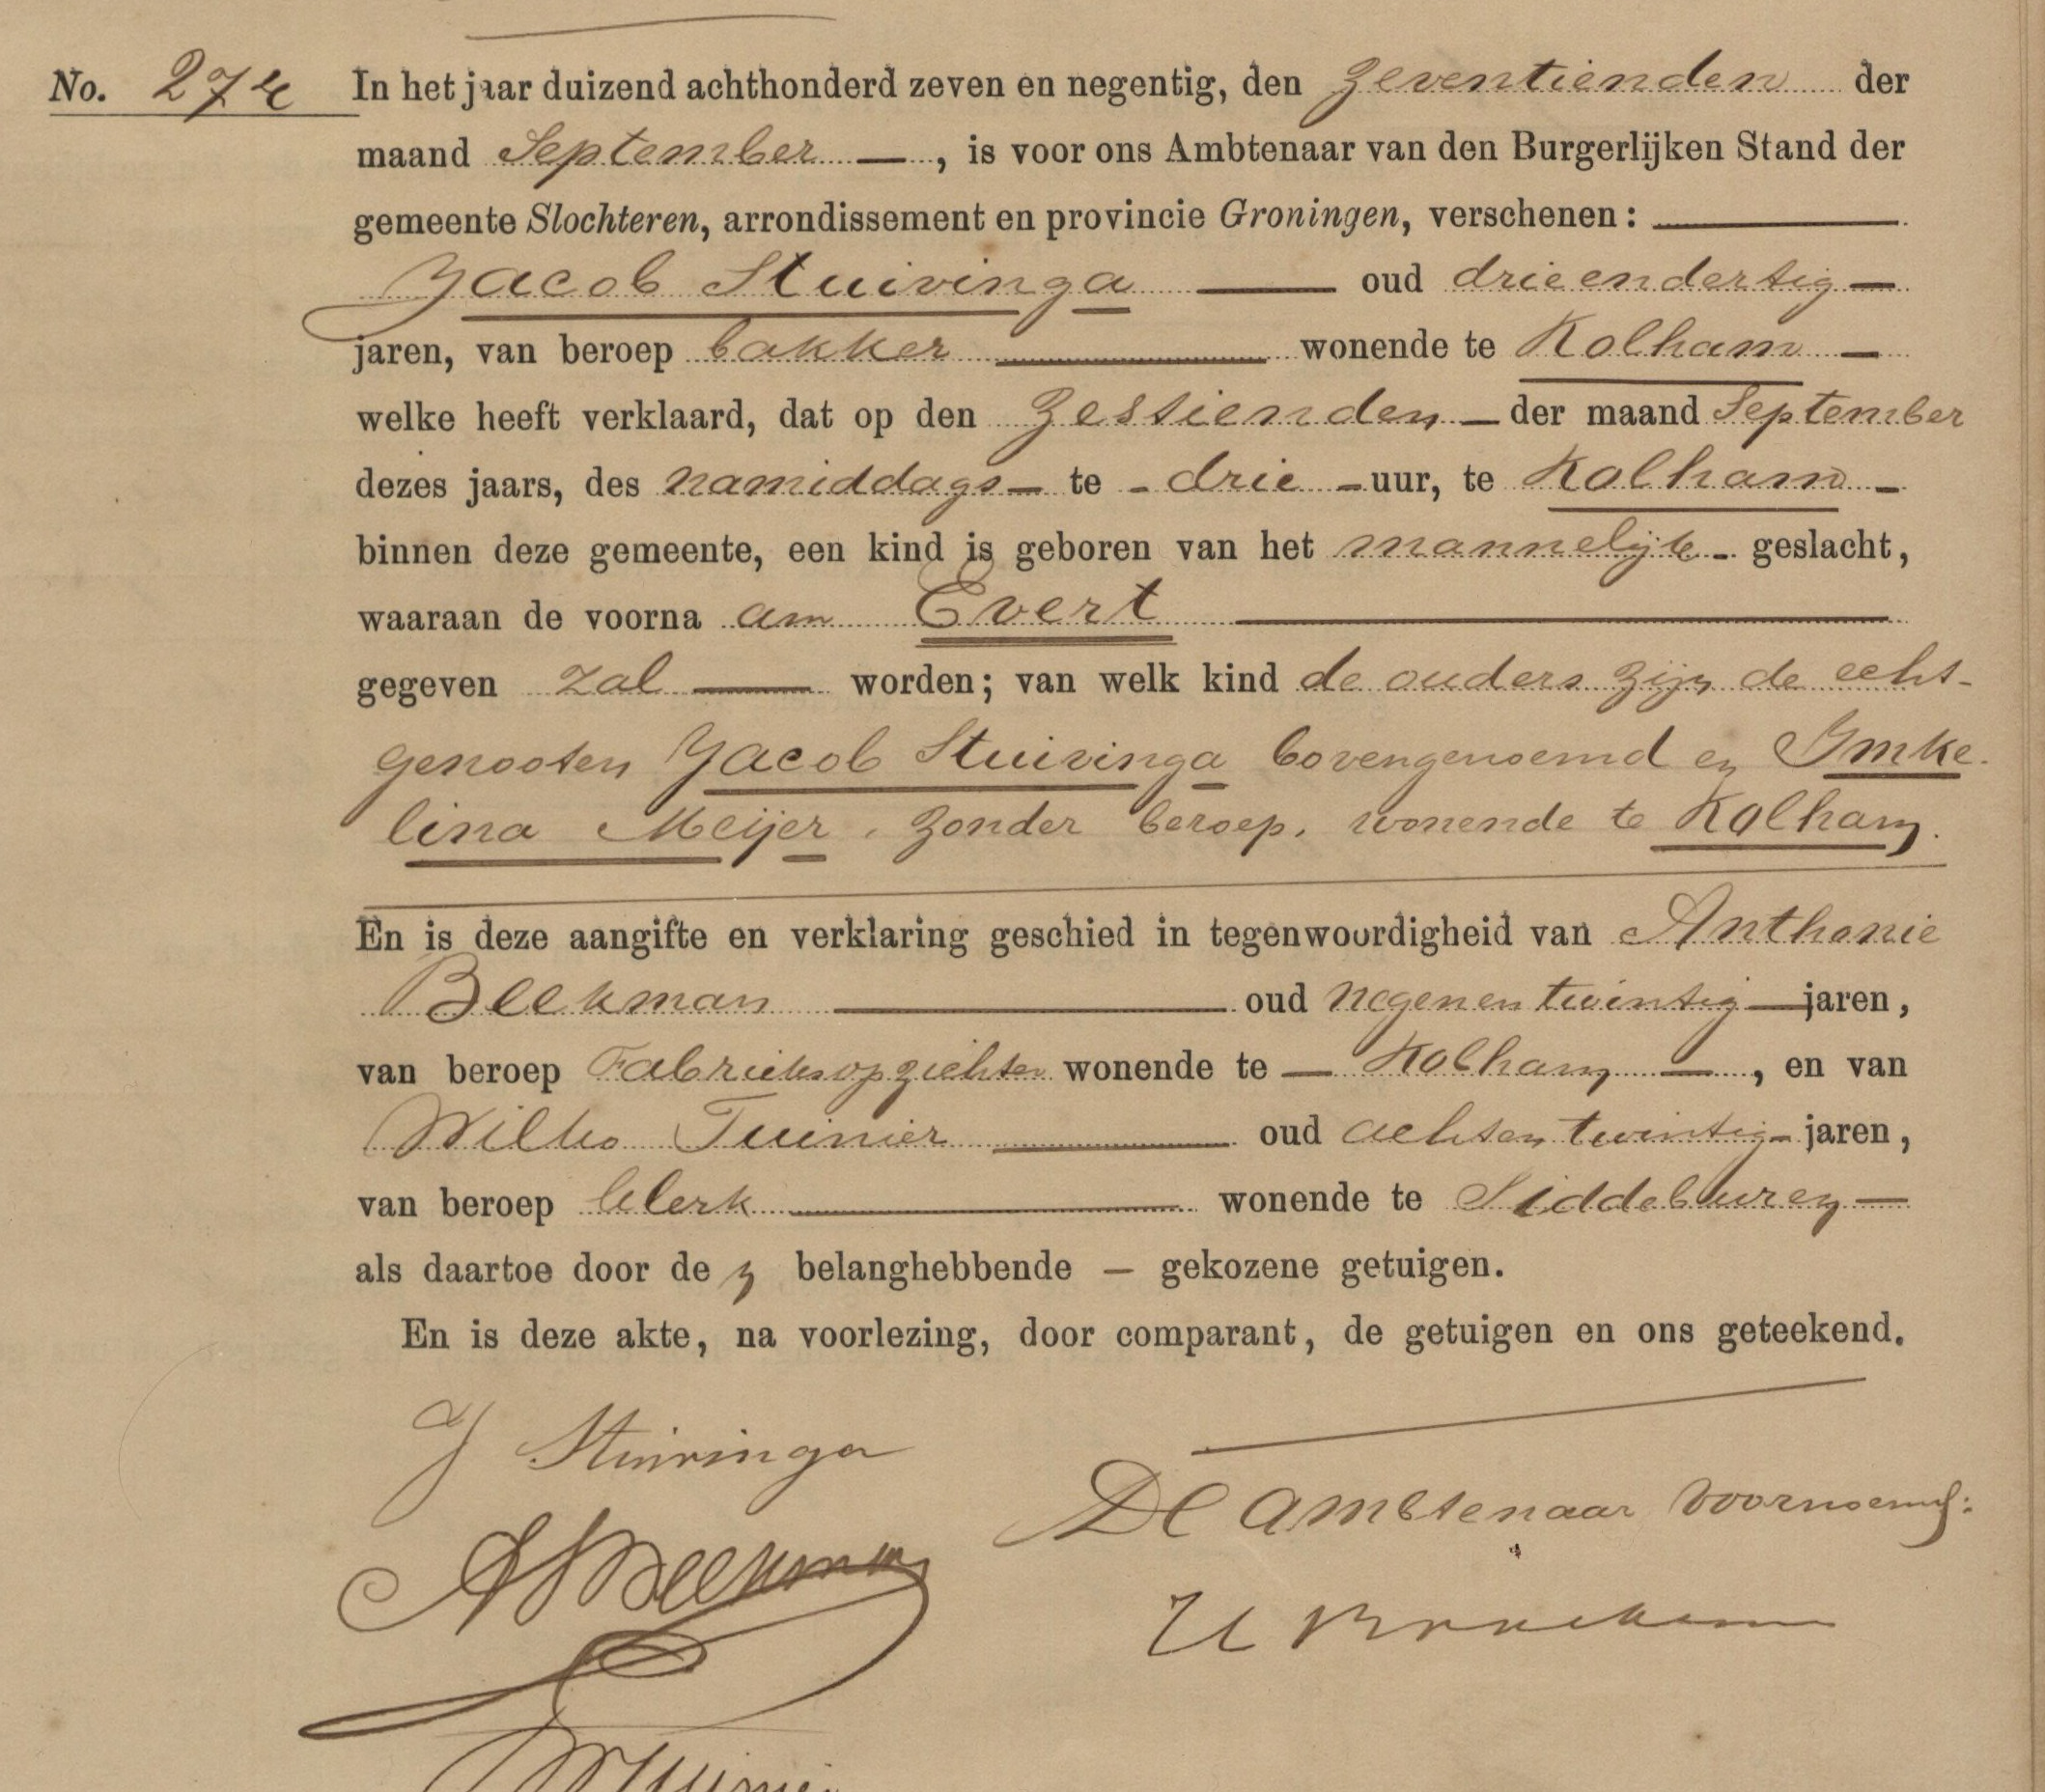 No. 274 In het jaar duizend achthonderd zeven en negentig, den zeventienden der
maand September —, is voor ons Ambtenaar van den Burgerlijken Stand der
gemeente Slochteren, arrondissement en provincie Groningen, verschenen: —
Jacob Stuivinga — oud drieendertig —
jaren, van beroep bakker — wonende te Kolham —
welke heeft verklaard, dat op den zestienden — der maand September
dezes jaars, des namiddags — te - drie - uur, te Kolham —
binnen deze gemeente, een kind is geboren van het mannelijk - geslacht,
waaraan de voorna am Evert —
gegeven zal — worden; van welk kind de ouders zijn de echt-
genooten Jacob Stuivinga bovengenoemd en Imke-
lina Meijer, zonder beroep, wonende te Kolham.
En is deze aangifte en verklaring geschied in tegenwoordigheid van Anthonie
Beekman — oud negenentwintig — jaren,
van beroep Fabrieksopzichter wonende te — Kolham —, en van
Wilko Tuinier — oud achtentwintig - jaren,
van beroep klerk — wonende te Siddeburen —
als daartoe door de n belanghebbende — gekozene getuigen.
En is deze akte, na voorlezing, door comparant, de getuigen en ons geteekend.
J Stuivinga
De Ambtenaar voornoemd:
A Beekman
Tuinier